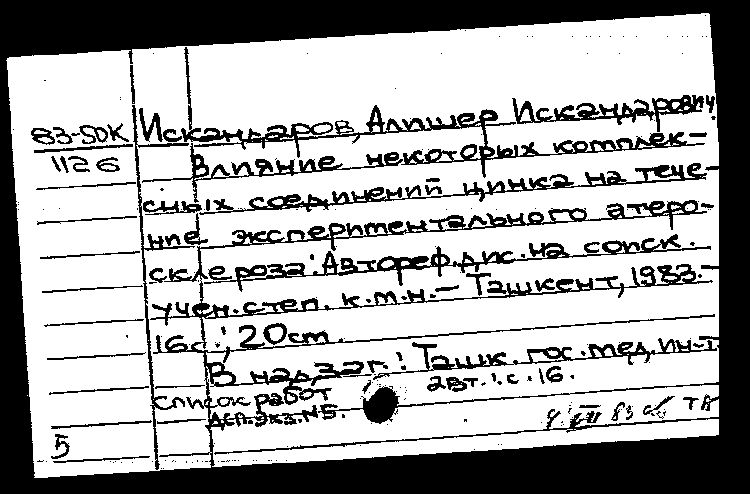 83-5DK Искандаров, Алишер Искандарович.
1126 Влияние некоторых комплек-
сных соединений цинка на тече-
ние экспериментального атеро-
склероза: Автореф. дис. на соиск.
учен. степ. к.м.н. - Ташкент, 1983. -
16с.; 20см.
В надзаг.: Ташк. гос. мед. ин-т.
Список работ авт.: с. 16.
Деп. экз. №5.
4 VIII 83
5